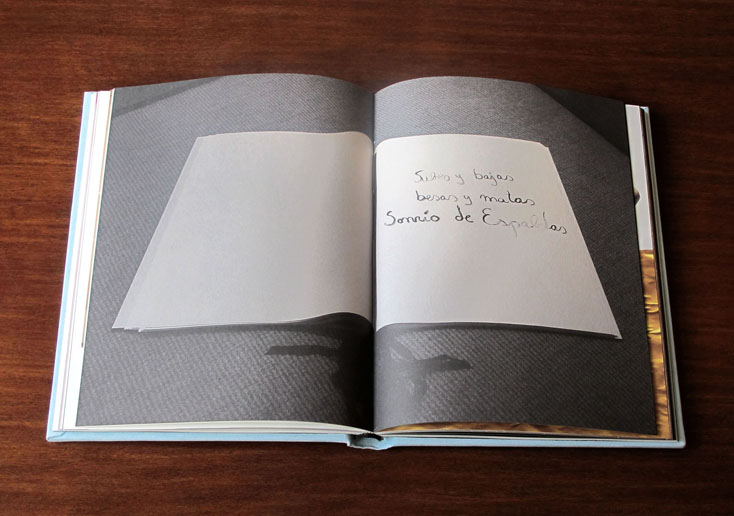 y bajas
besas y matas
Sonrío de Espaldas